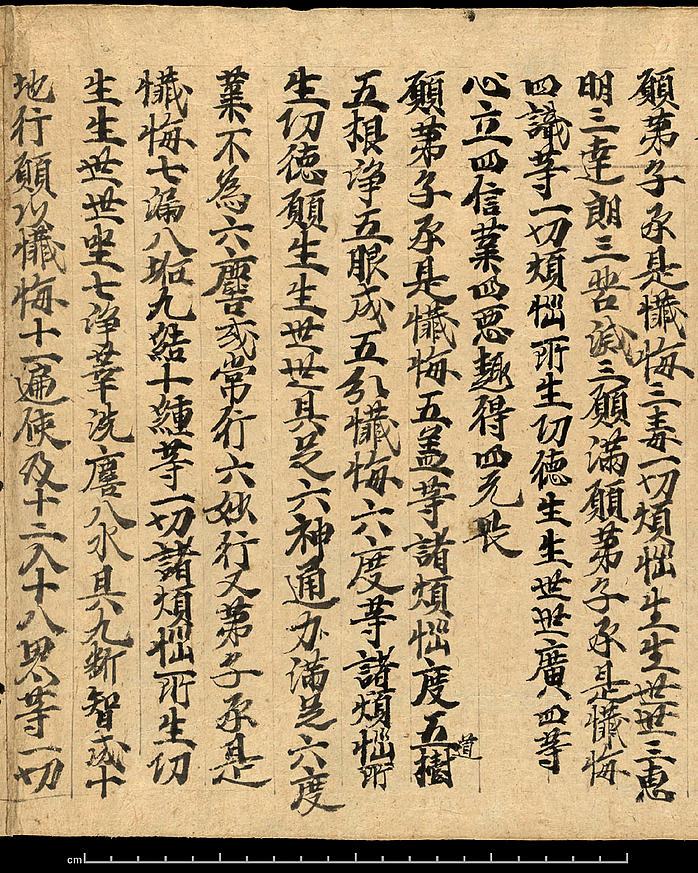 願弟子承是懺悔三毒一切煩惱生生世世三恵
明三達朗三苦滅三願滿願弟子承是懺悔
四識等一切煩惱所生功徳生生世世廣四等
心立四信業四惡趣得四无畏
願弟子承是懺悔五盖等諸煩惱度五道樹
五根淨五眼成五分懺悔六度等諸煩惱所
生功徳願生生世世具足六神通力滿足六度
業不為六塵或常行六妙行又弟子承是
懺悔七漏八垢九結十纏等一切諸煩惱所生功
生生世世坐七淨華洗塵八水具九斷智成十
地行願以懺悔十一遍使及十二入十八界等一切